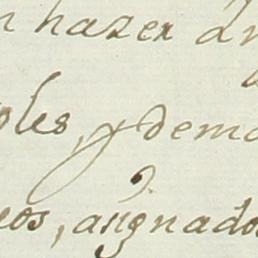 n hazer
oles, y dema
eos, asignados